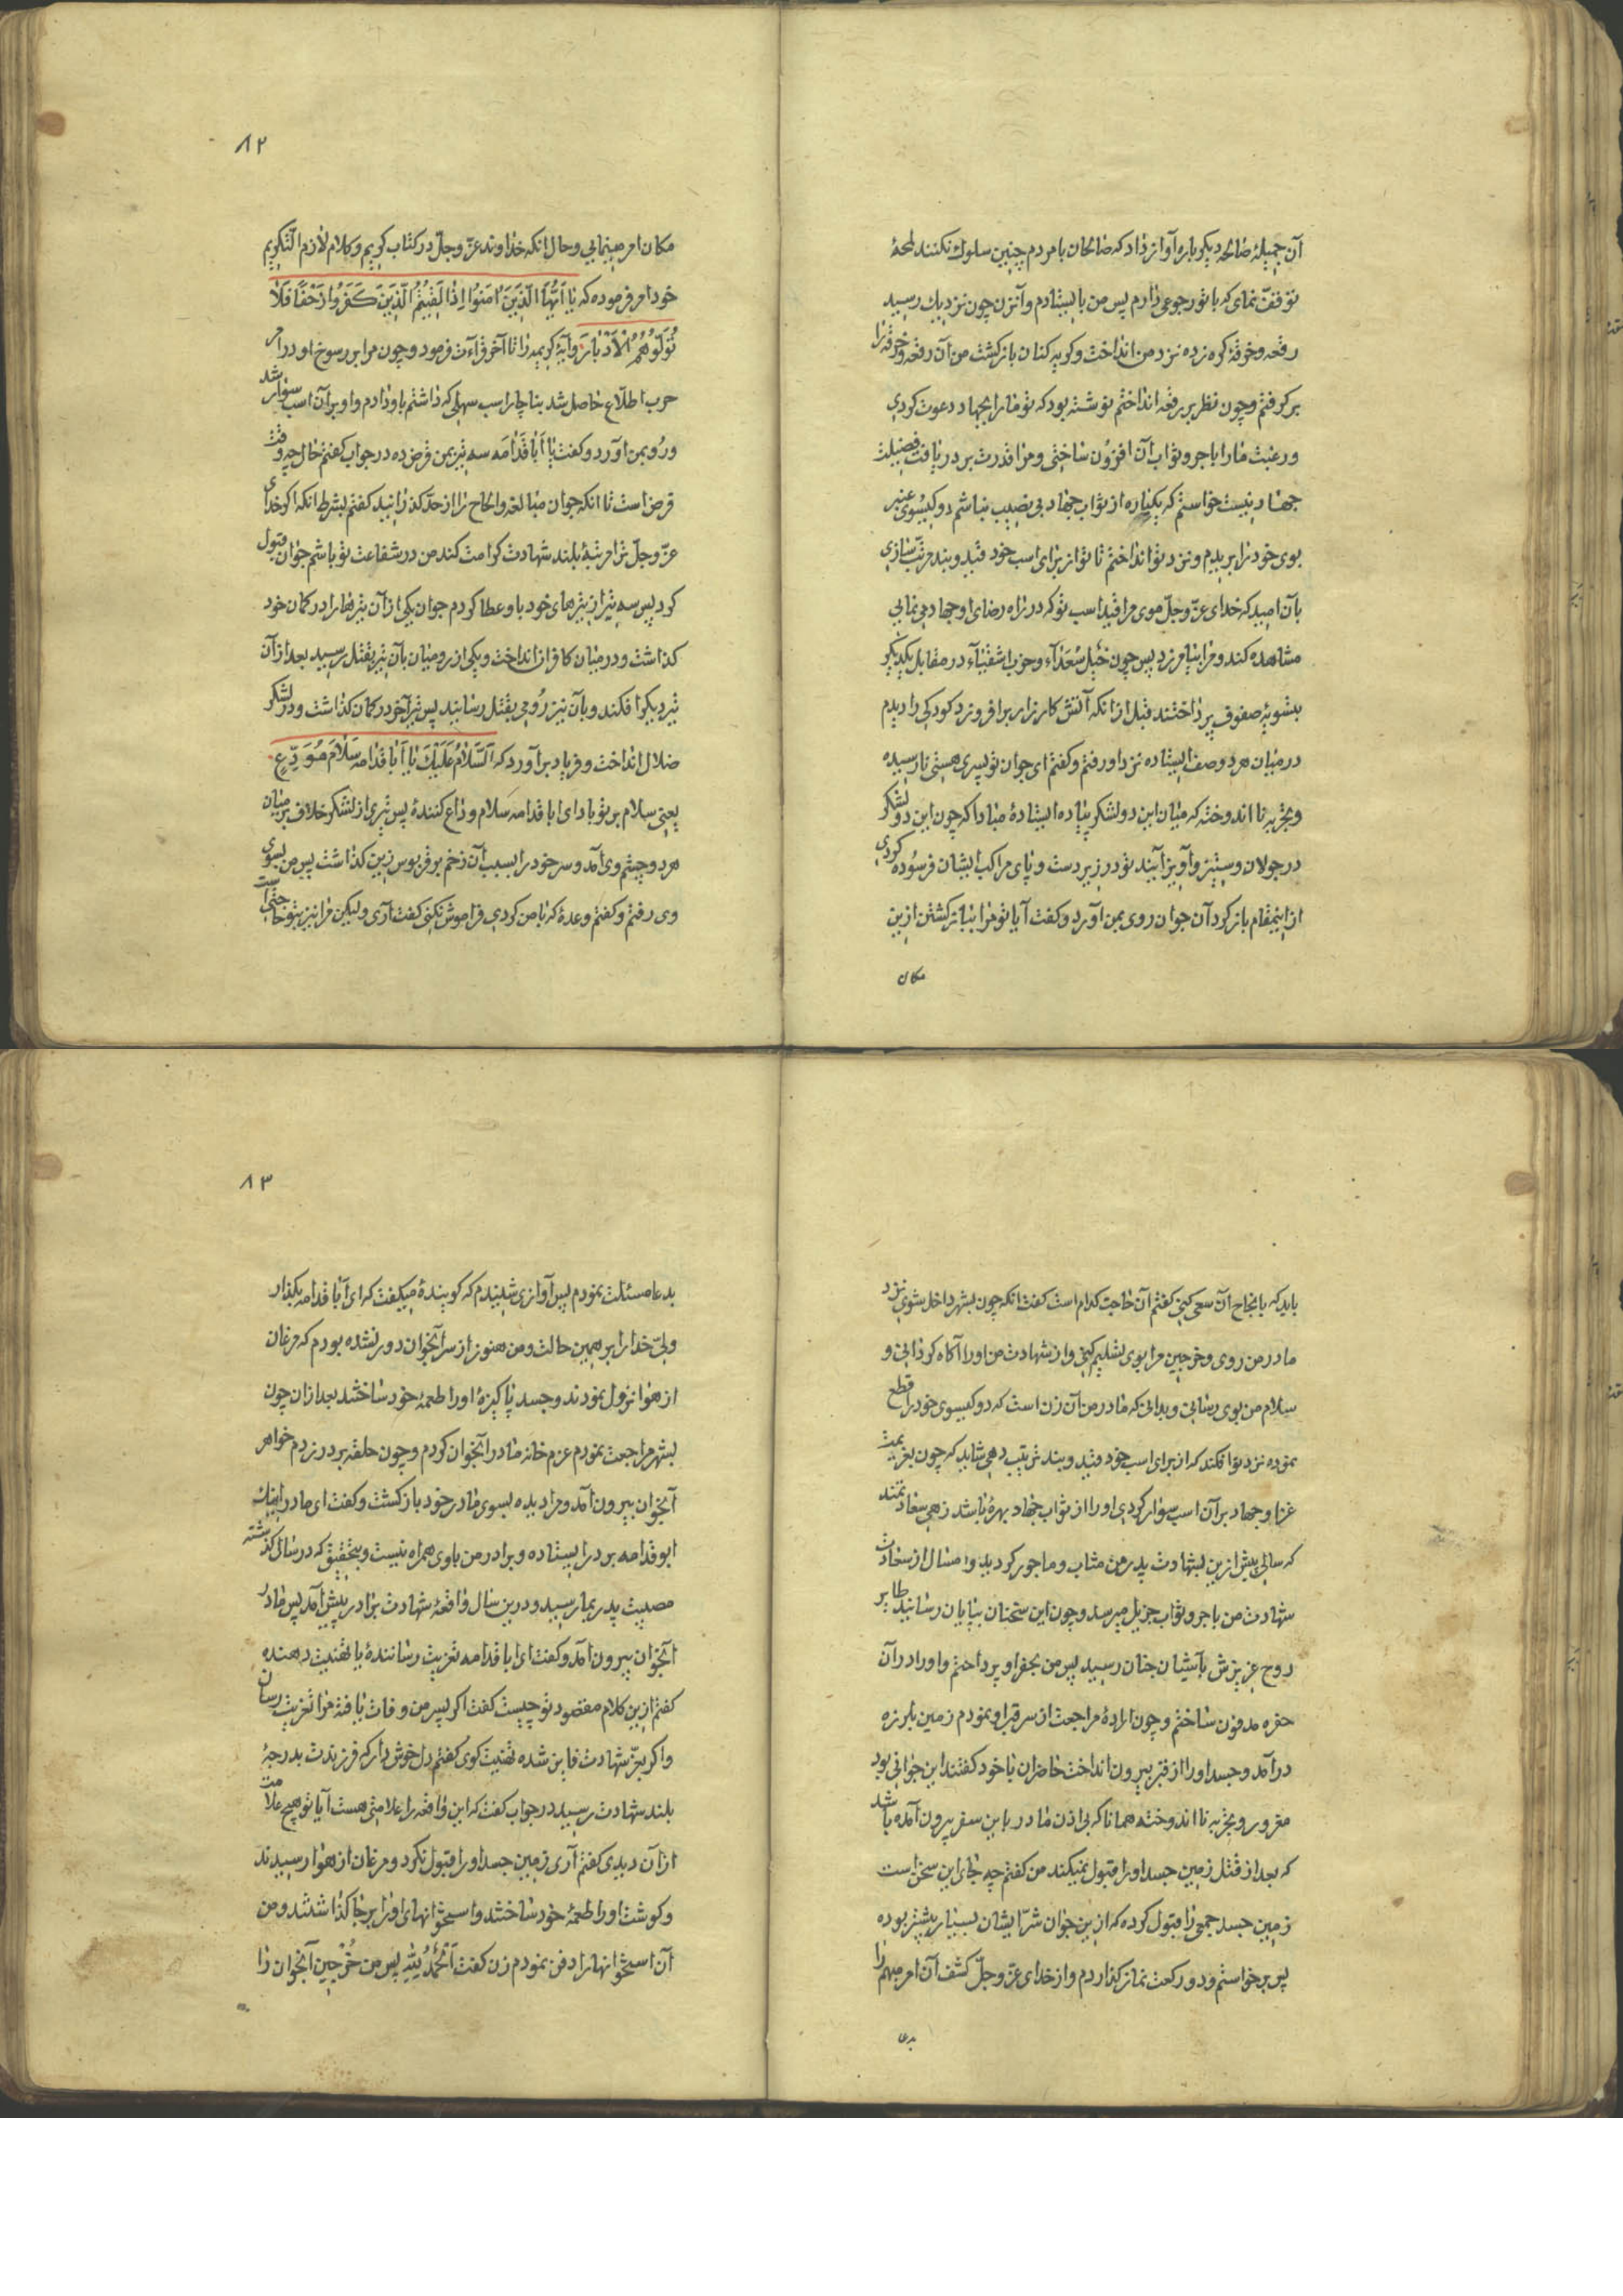 آن جمیلهٔ صالحه دیکر باره آواز داد که صالحان با مردم چنین سلوک نکنند لحهٔ
توقف نمای که با تو رجوعی دارم پس من بایستادم و آنزن چون نزدیک رسید
رقعه و خرقهٔ کره زده نزد من انداخت و کریه کنان بازکشت من آن رقعه و خرقه را
بر کرفتم و چون نظر بر رقعه انداختم نوشته بود که تو ما را بجهاد دعوت کردی
و رغبت ما را باجر و ثواب آن افزون ساختی و مرا قدرت بر دریافت فضیلت
جهاد نیست خواستم که یکباره از ثواب جهاد بی نصیب نباشم دو کیسوی عنبر
بوی خود را بریدم و نزد تو انداختم تا تو از برای اسب خود قید و بند مرتب سازی
بآن امید که خدای عزّ وجلّ موی مرا قید اسب تو که در راه رضای او جهاد می نمایی
مشاهده کند و مرا بیامرزد پس چون خیل سُعَدآء و حزب اشقیآء در مقابل یکدیکر
بتسویهٔ صفوف پرداختند قبل از انکه آتش کارزار برافروزد کودکی را دیدم
در میان هر دو صف ایستاده نزد او رفتم و کفتم ای جوان تو پسری هستی نارسیده
و تجربه نااندوخته که میان این دو لشکر پیاده ایستادهٔ مبادا که چون این دو لشکر
در جولان و ستیز و آویز آیند تو در زیر دست و پای مراکب ایشان فرسوده کردی
از اینمقام بازکرد آن جوان روی بمن آورد و کفت آیا تو مرا ببازکشتن ازین
مکان
۸۲
مکان امر مینمایی و حال انکه خداوند عزّ وجلّ در کتاب کریم و کلام لازم التّکریم
خود امر فرموده که یَا اَیُّهَا الَّذِینَ اٰمَنُوا اِذَا لَقِیتُمُ الَّذِینَ کَفَرُوا زَحْفًا فَلَا
تُوَلُّوهُمُ الْاَدْبَارَ و آیهٔ کریمه را تا آخر قراءت فرمود و چون مرا بر رسوخ او در امر
حرب اطلاع حاصل شد بناچار اسب سهلی که داشتم باو دادم و او بر آن اسب سوار شد
و رو بمن آورد و کفت یا اَبا قُدامَه سه تیر بمن قرض ده در جواب کفتم حال چه وقت
قرض است تا انکه جوان مبالغه و الحاح را از حدّ کذرانید کفتم بشرط انکه اکر خدای
عزّ وجلّ ترا مرتبهٔ بلند شهادت کرامت کند من در شفاعت تو باشم جوان قبول
کرد پس سه تیر از تیرهای خود باو عطا کردم جوان یکی از آن تیرها را در کمان خود
کذاشت و در میان کافران انداخت و یکی از رومیان بآن تیر بقتل رسید بعد از آن
تیر دیکر افکند و بآن نیز رُومی بقتل رسانید پس تیر آخر در کمان کذاشت و در لشکر
ضلال انداخت و فریاد برآورد که اَلسَّلَامُ عَلَیْکَ یَا اَبَا قُدَامَه سَلَامَ مُوَدِّعٍ
یعنی سلام بر تو باد ای ابا قدامه سلام وداع کنندهٔ پس تیری از لشکر خلاف بر میان
هر دو چشم وی آمد و سر خود را بسبب آن زخم بر قربوس زین کذاشت پس من بسوی
وی رفتم و کفتم وعدهٔ که با من کردی فراموش نکنی کفت آری ولیکن مرا نیز بتو حاجتی است
باید که بانجاح آن سعی کنی کفتم آن حاجت کدام است کفت انکه چون بشهر داخل شوی نزد
مادر من روی و خرجین مرا بوی تسلیم کنی و از شهادت من او را آکاه کردانی و
سلام من بوی رسانی و بدانی که مادر من آن زن است که دو کیسوی خود را قطع
نموده نزد تو افکند که از برای اسب خود قید و بند ترتیب دهی شاید که چون بعزیمت
غزا و جهاد بر آن اسب سوار کردی او را از ثواب جهاد بهرهٔ باشد زهی سعادتمند
که سالی پیش ازین بشهادت پدر من مثاب و ماجور کردید و امسال از سعادت
شهادت من باجر و ثواب جزیل میرسد و چون این سخنان بپایان رسانید طایر
روح عزیزش بآشیان جنان رسید پس من بحفر او پرداختم و او را در آن
حفره مدفون ساختم و چون ارادهٔ مراجعت از سر قبر او نمودم زمین بلرزه
درآمد و جسد او را از قبر بیرون انداخت حاضران با خود کفتند این جوانی بود
مغرور و تجربه نااندوخته همانا که بی اذن مادر باین سفر بیرون آمده باشد
که بعد از قتل زمین جسد او را قبول نمیکند من کفتم چه جای این سخن است
زمین جسد جمعی را قبول کرده که ازین جوان شرّ ایشان بسیار بیشتر بوده
پس برخواستم و دو رکعت نماز کذاردم و از خدای عزّ وجلّ کشف آن امر مبهم را
بدعا
۸۳
بدعا مسئلت نمودم پس آوازی شنیدم که کویندهٔ میکفت که ای اَبا قدامه بکذار
ولیّ خدا را بر همین حالت و من هنوز از سر آنجوان دور نشده بودم که مرغان
از هوا نزول نمودند و جسد پاکیزهٔ او را طعمهٔ خود ساختند بعد ازان چون
بشهر مراجعت نمودم عزم خانه مادر آنجوان کردم و چون حلقه بر در زدم خواهر
آنجوان بیرون آمد و مرا دیده بسوی مادر خود بازکشت و کفت ای مادر اینک
ابو قدامه بر در ایستاده و برادر من با وی همراه نیست و بتحقیق که در سال کذشته
مصیبت پدر بما رسید و درین سال واقعهٔ شهادت برادر پیش آمد پس مادر
آنجوان بیرون آمد و کفت ای ابا قدامه تعزیت رسانندهٔ یا تهنیت دهنده
کفتم ازین کلام مقصود تو چیست کفت اکر پسر من وفات یافته مرا تعزیت رسان
و اکر بعزّ شهادت فایز شده تهنیت کوی کفتم دل خوش دار که فرزندت بدرجهٔ
بلند شهادت رسید در جواب کفت که این واقعه را علامتی هست آیا تو هیچ علامت
از آن دیدی کفتم آری زمین جسد او را قبول نکرد و مرغان از هوا رسیدند
و کوشت او را طعمهٔ خود ساختند و استخوانهای او را بر جا کذاشتند و من
آن استخوانها را دفن نمودم زن کفت اَلْحَمْدُ لِلّٰهِ پس من خُرْجین آنجوان را